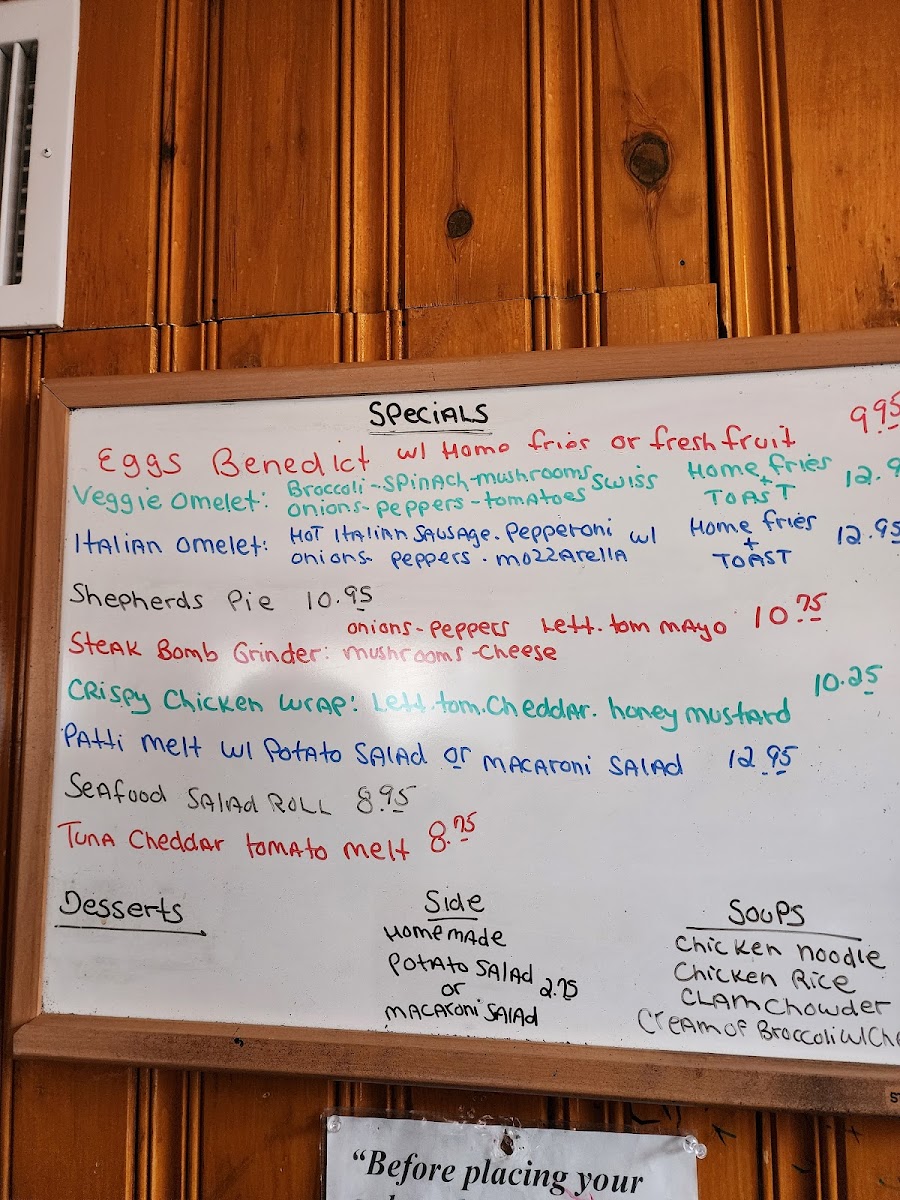 SPECIALS
Eggs Benedict w/ Home fries or fresh fruit 9.95
Veggie omelet: Broccoli-Spinach-mushrooms Swiss Home fries
onions-peppers-tomatoes + TOAST 12.9
Italian omelet: Hot Italian Sausage. Pepperoni w/ Home fries
onions- peppers. mozzarella + TOAST 12.95
Shepherds Pie 10.95
onions-peppers Lett. tom mayo 10.75
Steak Bomb Grinder: mushrooms-cheese
Crispy Chicken wrap: Lett. tom. Cheddar. honey mustard 10.25
Patti melt w/ Potato Salad or macaroni Salad 12.95
Seafood Salad ROLL 8.95
Tuna Cheddar tomato melt 8.75
Desserts
Side
Homemade
Potato Salad
or 2.75
macaroni Salad
Soups
Chicken noodle
Chicken Rice
Clam Chowder
Cream of Broccoli w/ Che
"Before placing your